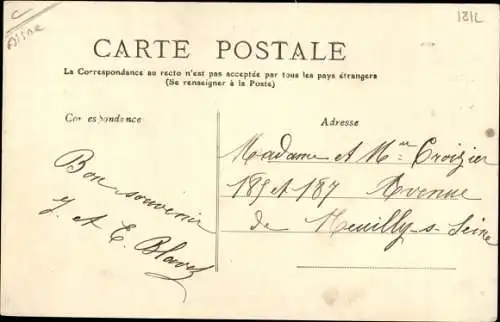 Aisne
1212
CARTE POSTALE
La Correspondance au recto n'est pas acceptée par tous les pays étrangers
(Se renseigner à la Poste)
Cor espondance
Adresse
Bon souvenir
J. et E. Blavet
Madame et Mr Croizier
185 et 187 Avenue
de Neuilly-s-Seine